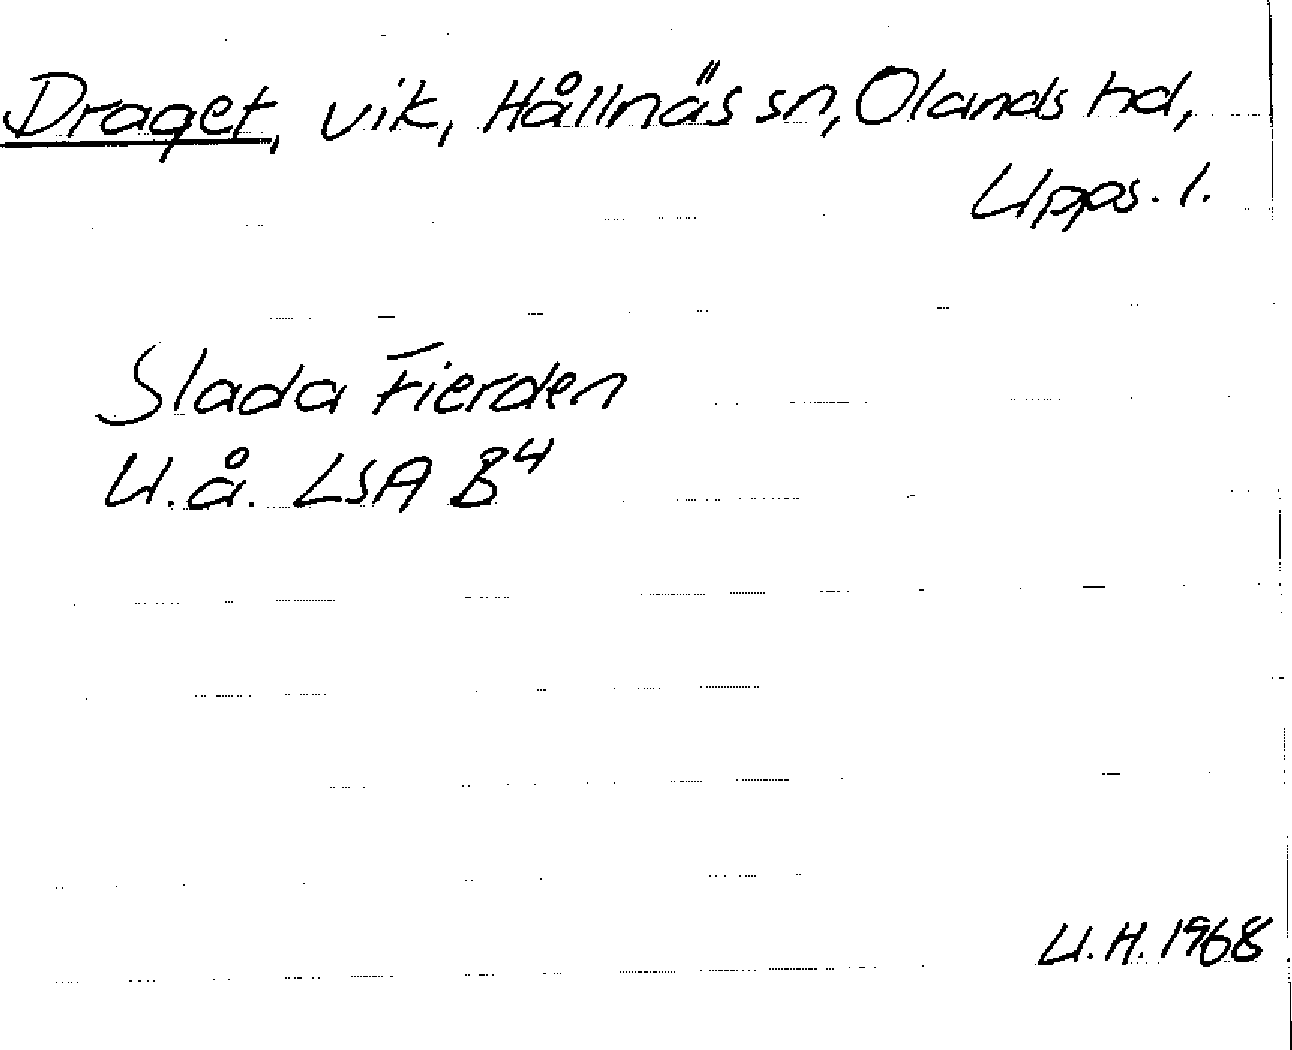 Draget, vik, Hållnäs sn, Olands hd,
Upps. l.
Slada Fierden
U.å. LSA B4
U.H. 1968